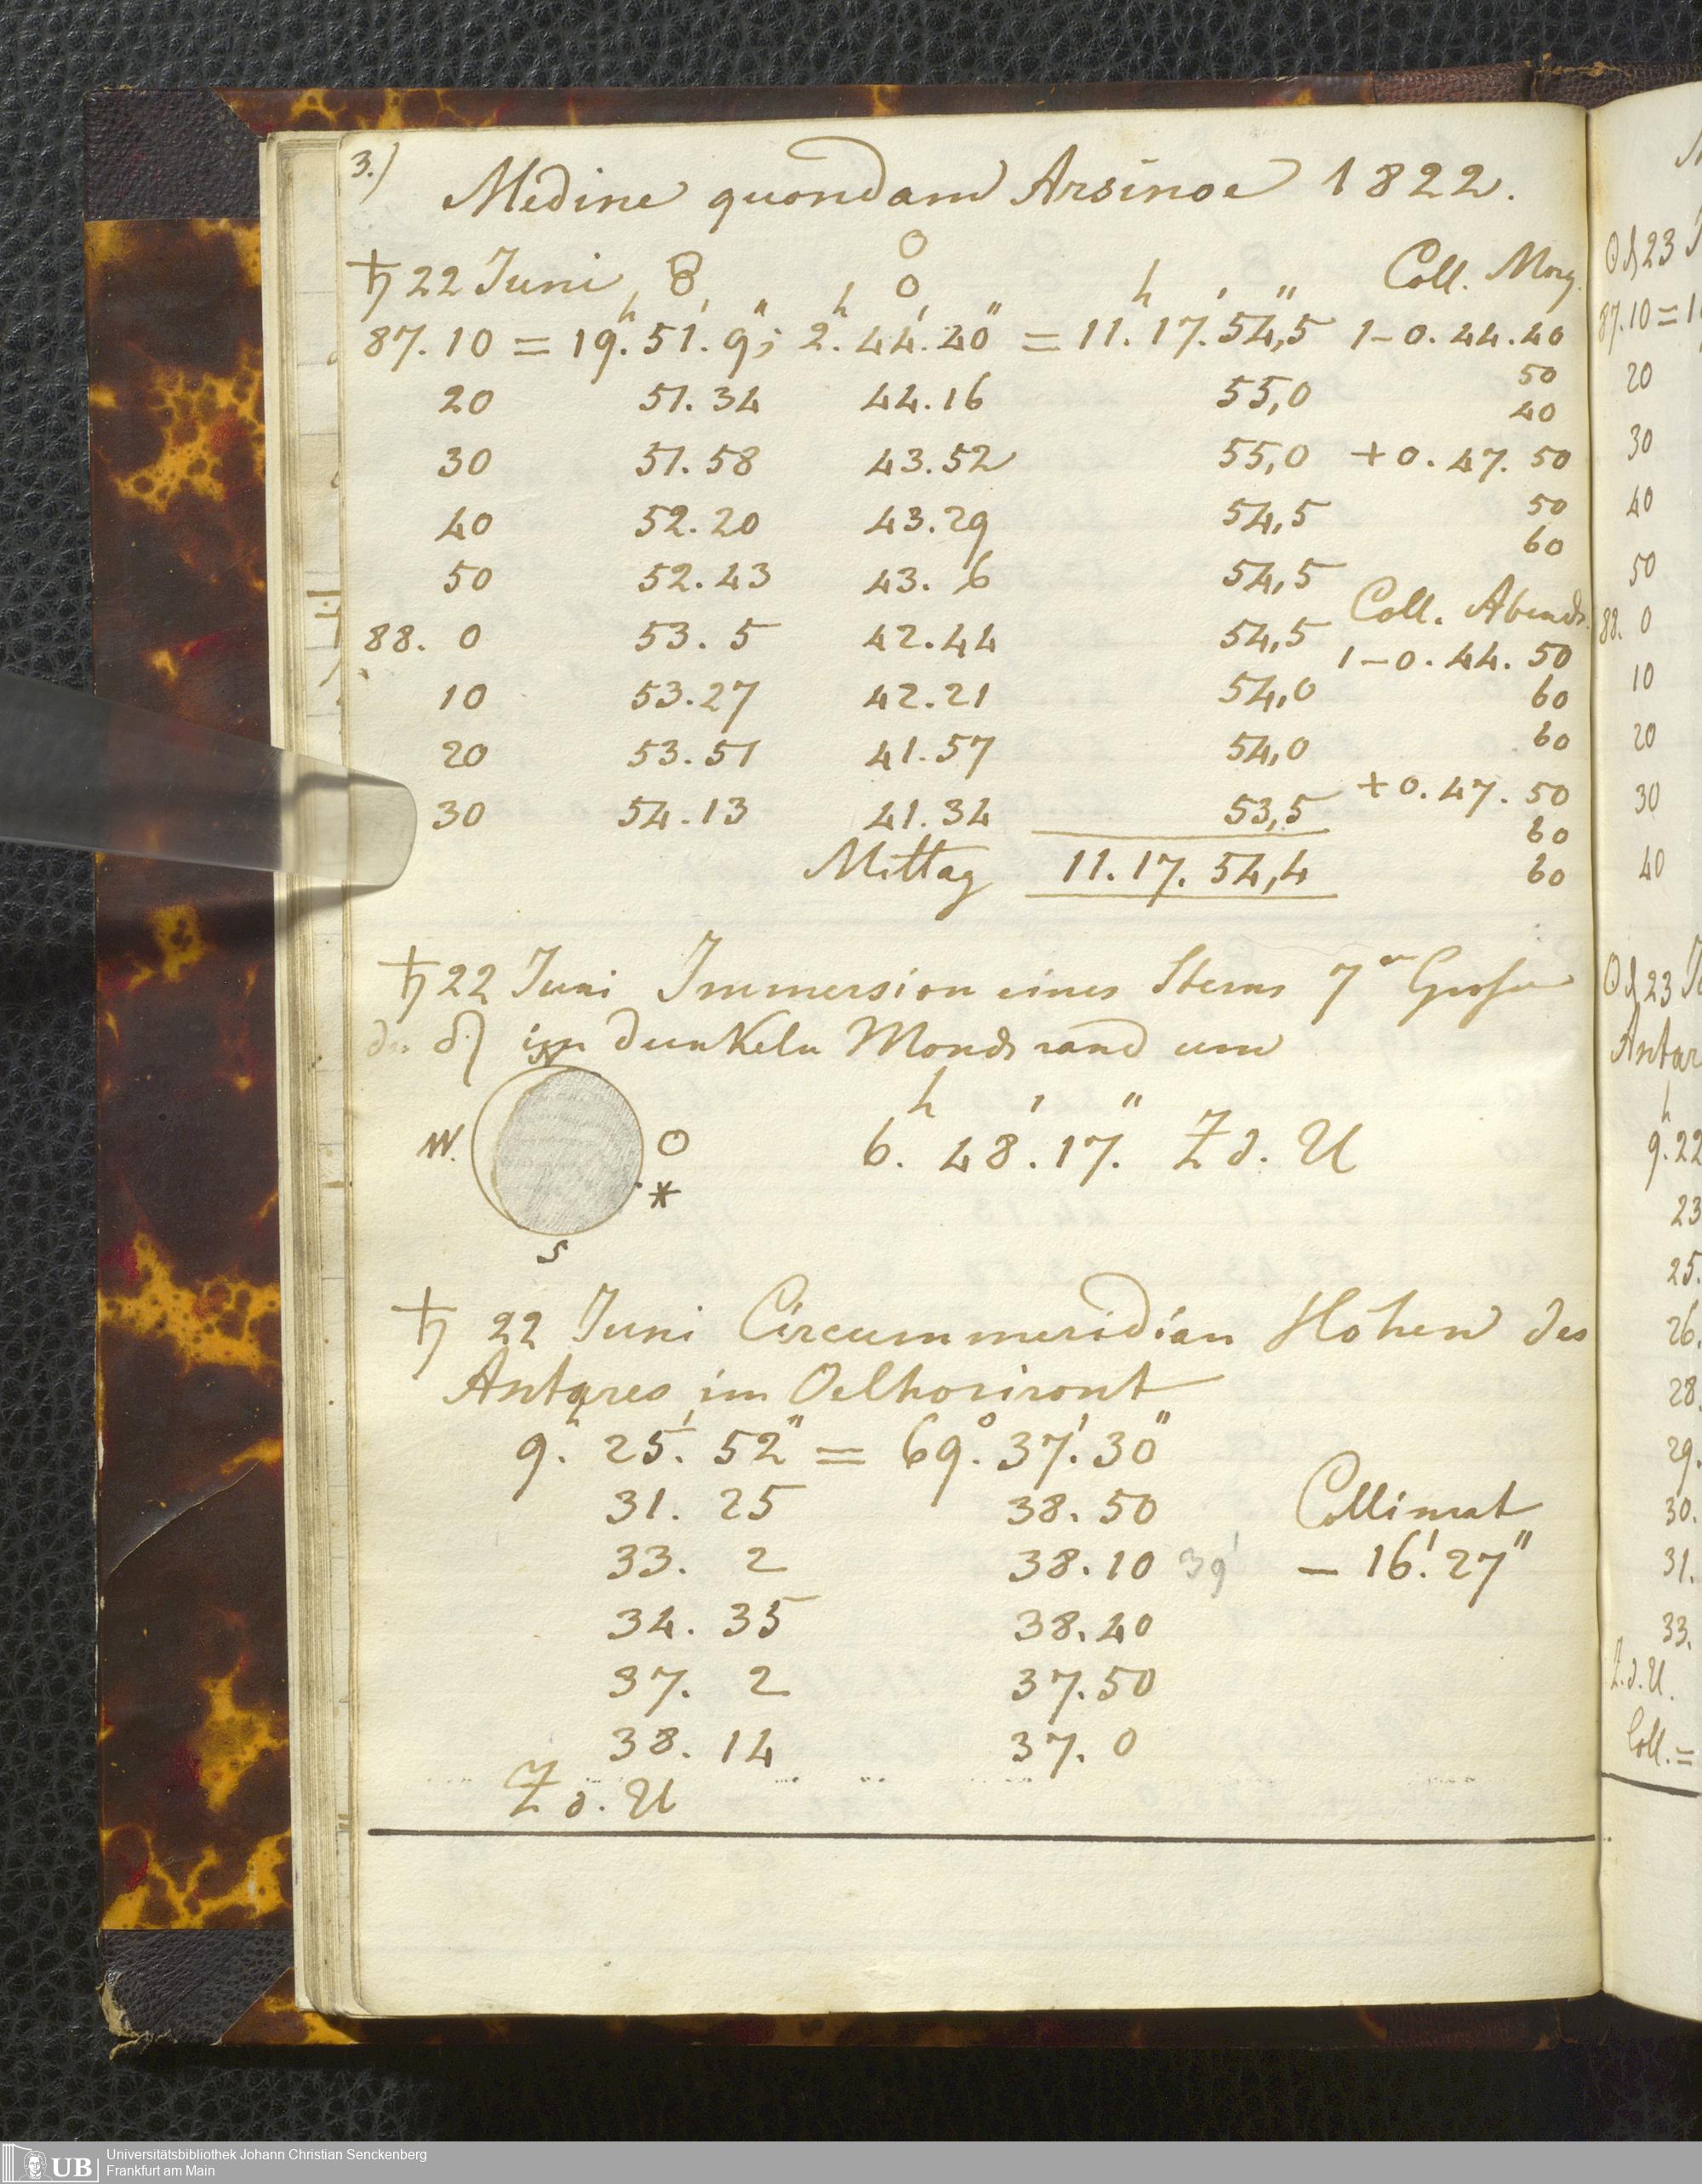 3.)
Medine quondam Arsinoe 1822.
♄ 22 Juni
Coll. Morg.
h ' " h ' " h ' "
87.10 = 19.51.9; 2.44.40 = 11.17.54,5 1-0.44.40
50
20 51.34 44.16 55,0
40
30 51.58 43.52 55,0 +0.47.50
40 52.20 43.29 54,5 50
60
50 52.43 43. 6 54,5
Coll. Abends.
88. 0 53. 5 42.44 54,5
1-0.44.50
10 53.27 42.21 54,0 60
20 53.51 41.57 54,0 60
+0.47.50
30 54.13 41.34 53,5
60
Mittag 11.17.54,4 60
♄ 22 Juni Immersion eines Sterns 7er Grösse
im dunkeln Mondsrand um
N
h ' "
W. O 6. 48. 17. Z d. U
*
S
♄ 22 Juni Circummeridian Hohen des
Antares im Oelhorizont
9.h 25.' 52" = 69.° 37.' 30"
31. 25 38. 50 Collimat
33. 2 38. 10 39' - 16.' 27"
34. 35 38. 40
37. 2 37. 50
38. 14 37. 0
Z d. U
☉ d 23
87.10 = 1
20
30
40
50
88. 0
10
20
30
40
☉ d 23
Antar
h
9.22
23
25.
26.
28.
29.
30.
31.
33.
Z. d. U.
Coll. =
UB
Universitätsbibliothek Johann Christian Senckenberg
Frankfurt am Main